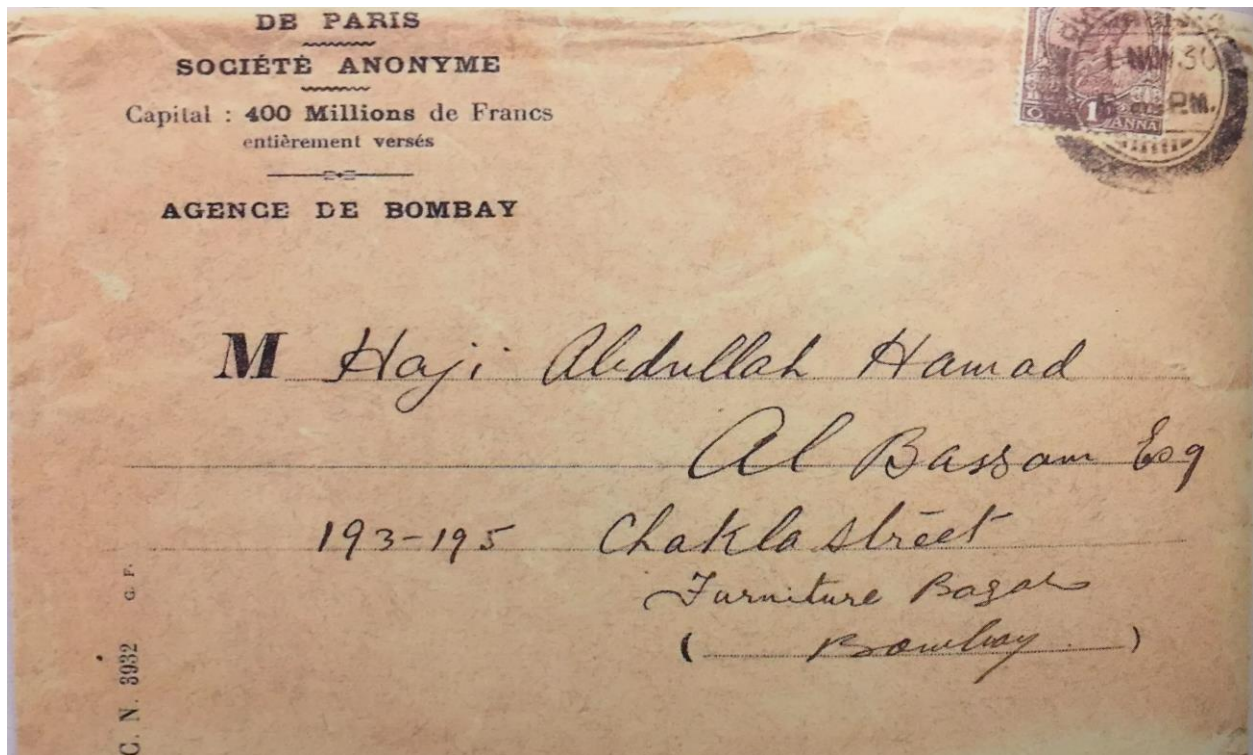 DE PARIS
SOCIÉTÉ ANONYME
Capital : 400 Millions de Francs
entièrement versés
AGENCE DE BOMBAY
1 NOV. 30
PM.
1
ANNA
M Haji Abdullah Hamad
Al Bassam Esq
193-195 Chakla street
Furniture Bazar
( Bombay )
C. N. 3932 G. F.